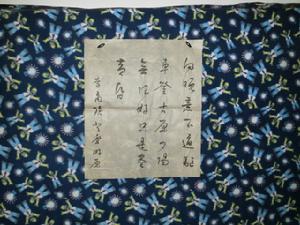 向晚意不適驅
車登古原夕陽
無限好只是近
黄昏
李商隱登樂游原